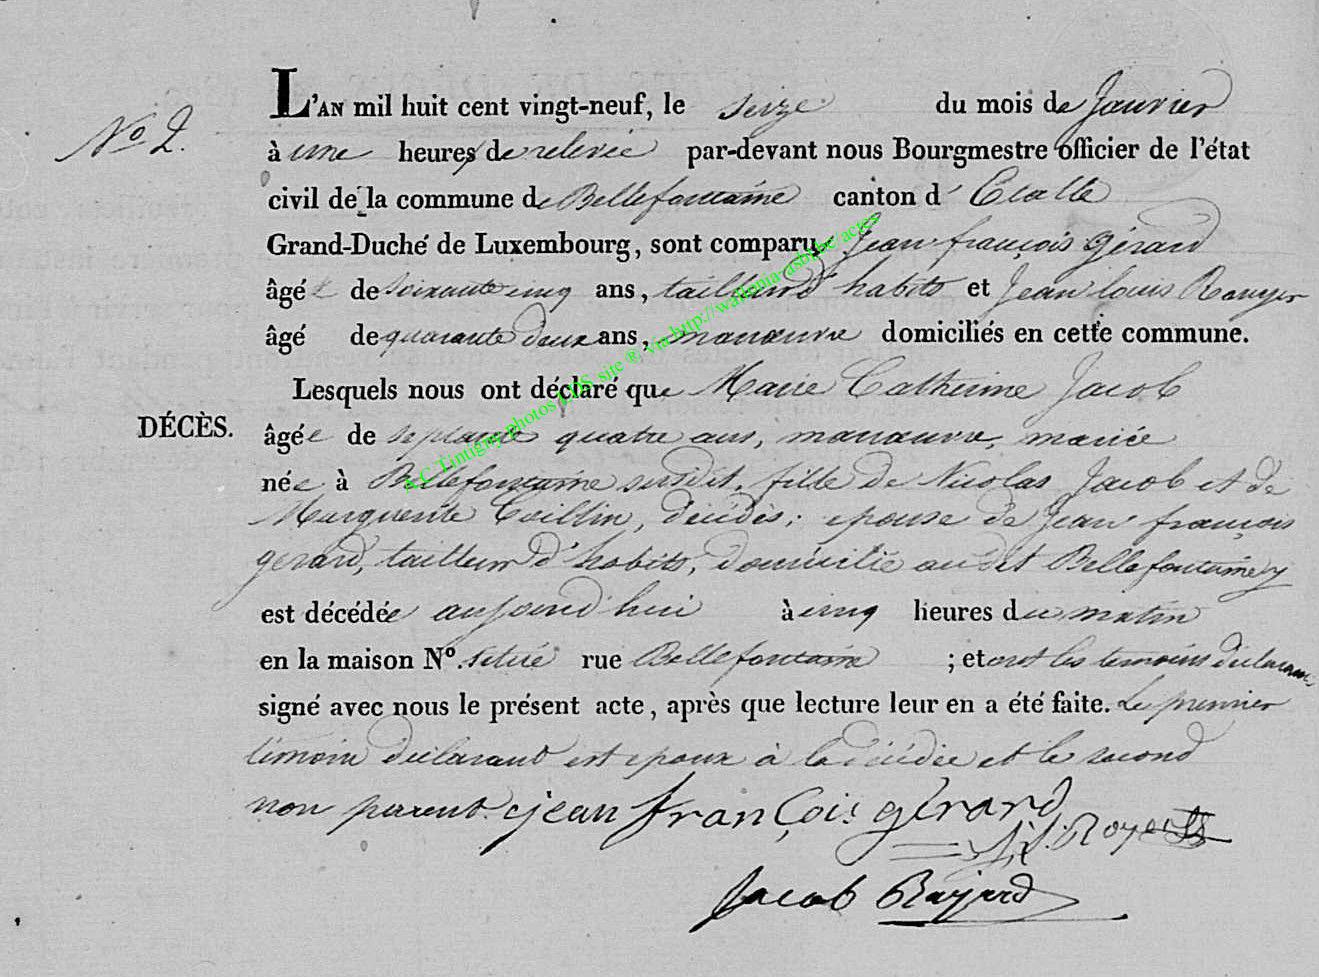 No 2.
L'AN mil huit cent vingt-neuf, le seize du mois de Janvier
à une heures de relevée par-devant nous Bourgmestre officier de l'état
civil de la commune de Bellefontaine canton d' Etalle
Grand-Duché de Luxembourg, sont comparus Jean françois gérard
âgé de soixante cinq ans, tailleur d'habits et Jean louis Rouyer
âgé de quarante deux ans, manœuvre domiciliés en cette commune.
Lesquels nous ont déclaré que Marie Catherine Jacob
DÉCÈS.
âgée de septante quatre ans, manœuvre, mariée
née à Bellefontaine susdit, fille de Nicolas Jacob et de
Marguerite décédés; epouse de Jean françois
gerard, tailleur d'habits, domicilié audit Bellefontaine
est décédée aujourd'hui à cinq heures du matin
en la maison No. située rue Bellefontaine ; et ont les temoins déclarans
signé avec nous le présent acte, après que lecture leur en a été faite. Le premier
témoin déclarant est epoux à la décédée et le second
non parent. jean françois gérard
J. L. Royer
Jacob
A.C Tintigny photos LDS site ® via http://wallonia-asbl.be/actes